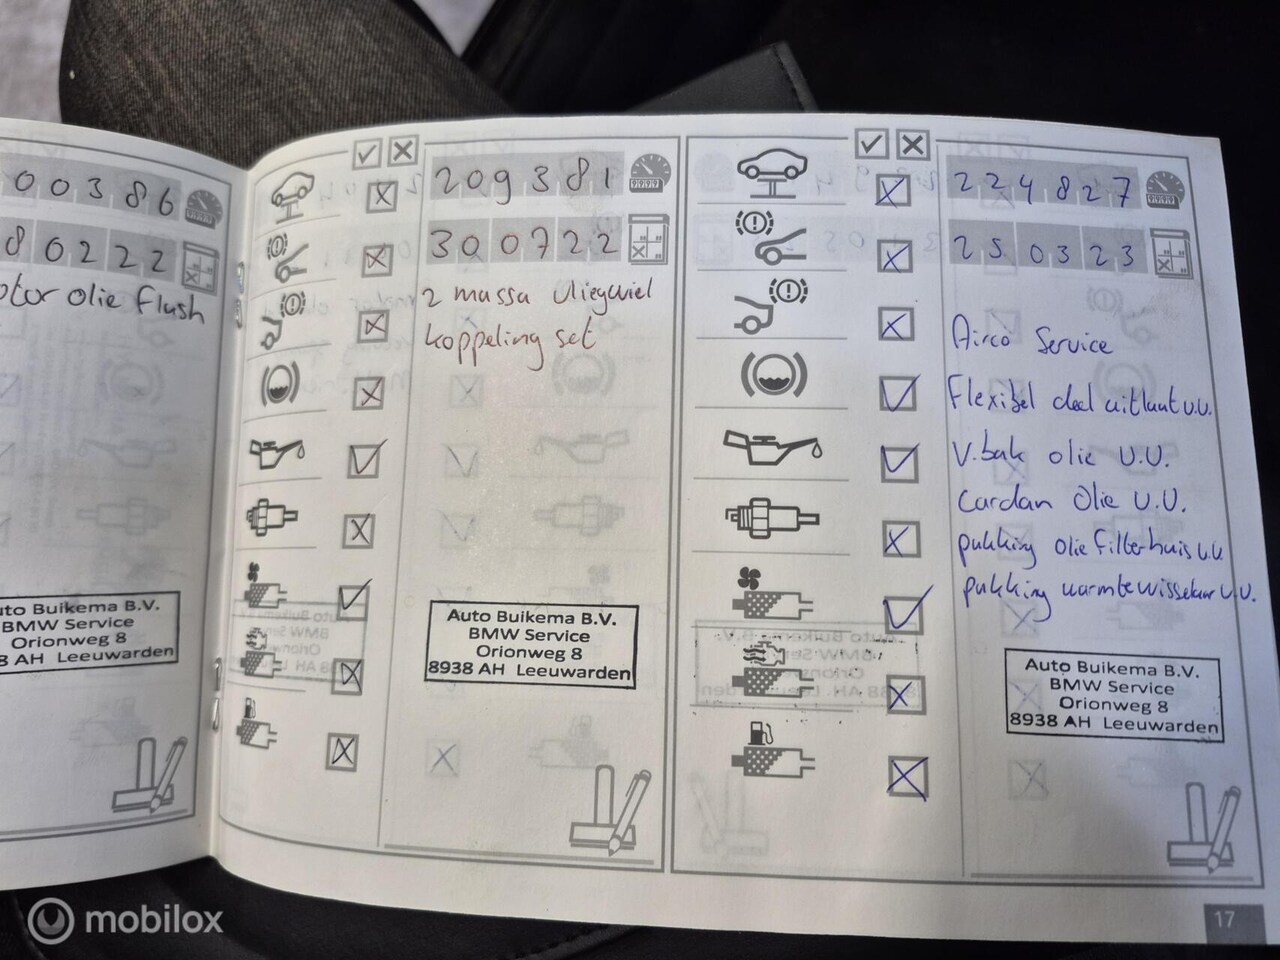 00386
80222
otor olie flush
uto Buikema B.V.
BMW Service
Orionweg 8
8 AH Leeuwarden
209381
300722
2 massa vliegwiel
koppeling set
Auto Buikema B.V.
BMW Service
Orionweg 8
8938 AH Leeuwarden
224827
250323
Airco Service
Flexibel deel uitlaat v.v.
V.bak olie v.v.
Cardan olie v.v.
pakking olie filterhuis v.v.
pakking warmtewisselaar v.v.
Auto Buikema B.V.
BMW Service
Orionweg 8
8938 AH Leeuwarden
17
mobilox